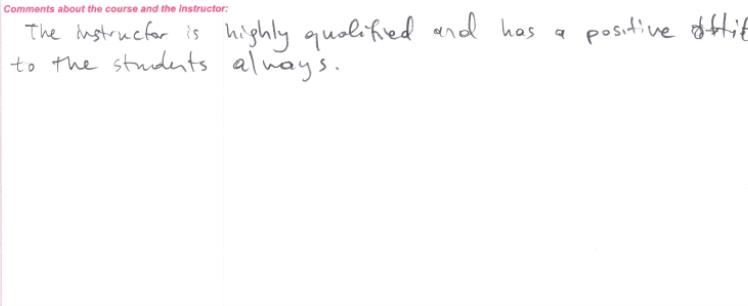 Comments about the course and the Instructor:
The instructor is highly qualified and has a positive
to the students always.